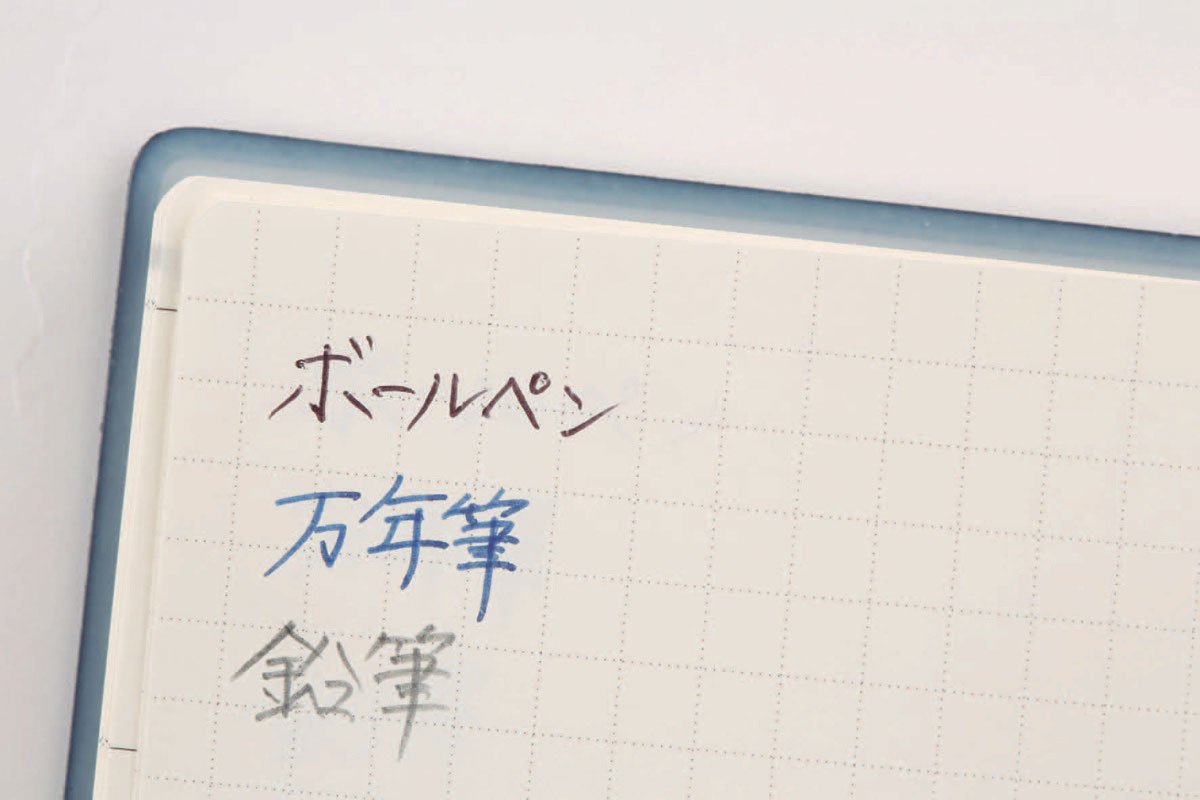 ボールペン
万年筆
鉛筆